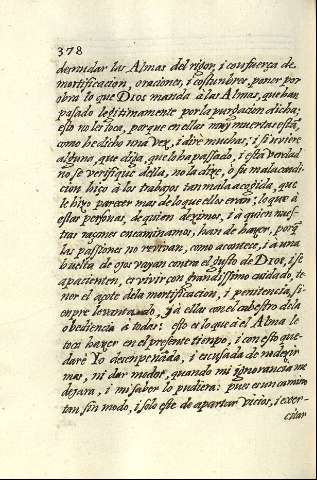 378
desnudar las Almas del rigor, i con fuerça de
mortificacion, oraciones, i costunbres, poner por
obra lo que Dios manda a las Almas, que han
pasado legitimamente por la purgacion dicha;
esto no les toca, porque en ellas muy muertas està,
como he dicho una vez, i dire muchas; i si uviere
alguno, que diga, que lo ha passado, i esta verdad
no se verifique della, no la dixe, o su mala condi-
cion hiço à los trabajos tan mala acogida, que
le hiço parecer mas de lo que ellos eran; lo que à
estas personas, de quien deximos, i à quien nues-
tras raçones encaminamos, han de haxer, porq̃
las passiones no revivan, como acontece, i à una
buelta de ojos vayan contra el gusto de Dios, i se
apacienten, es vivir con grandissimo cuidado, te-
ner el açote dela mortificacion, i penitencia, si-
enpre levantado, i à ellas con el cabestro dela
obediencia à todas: esto es lo que à el Alma le
toca haxer en el presente tiempo, i con esto que-
darè Yo desenpeñada, i escusada de no dexir
mas, ni dar modos, quando mi ignorancia me
dejara, i mi saber lo pudiera: pues es un camino
tan sin modo, i solo este de apartar vicios, i exer-
citar